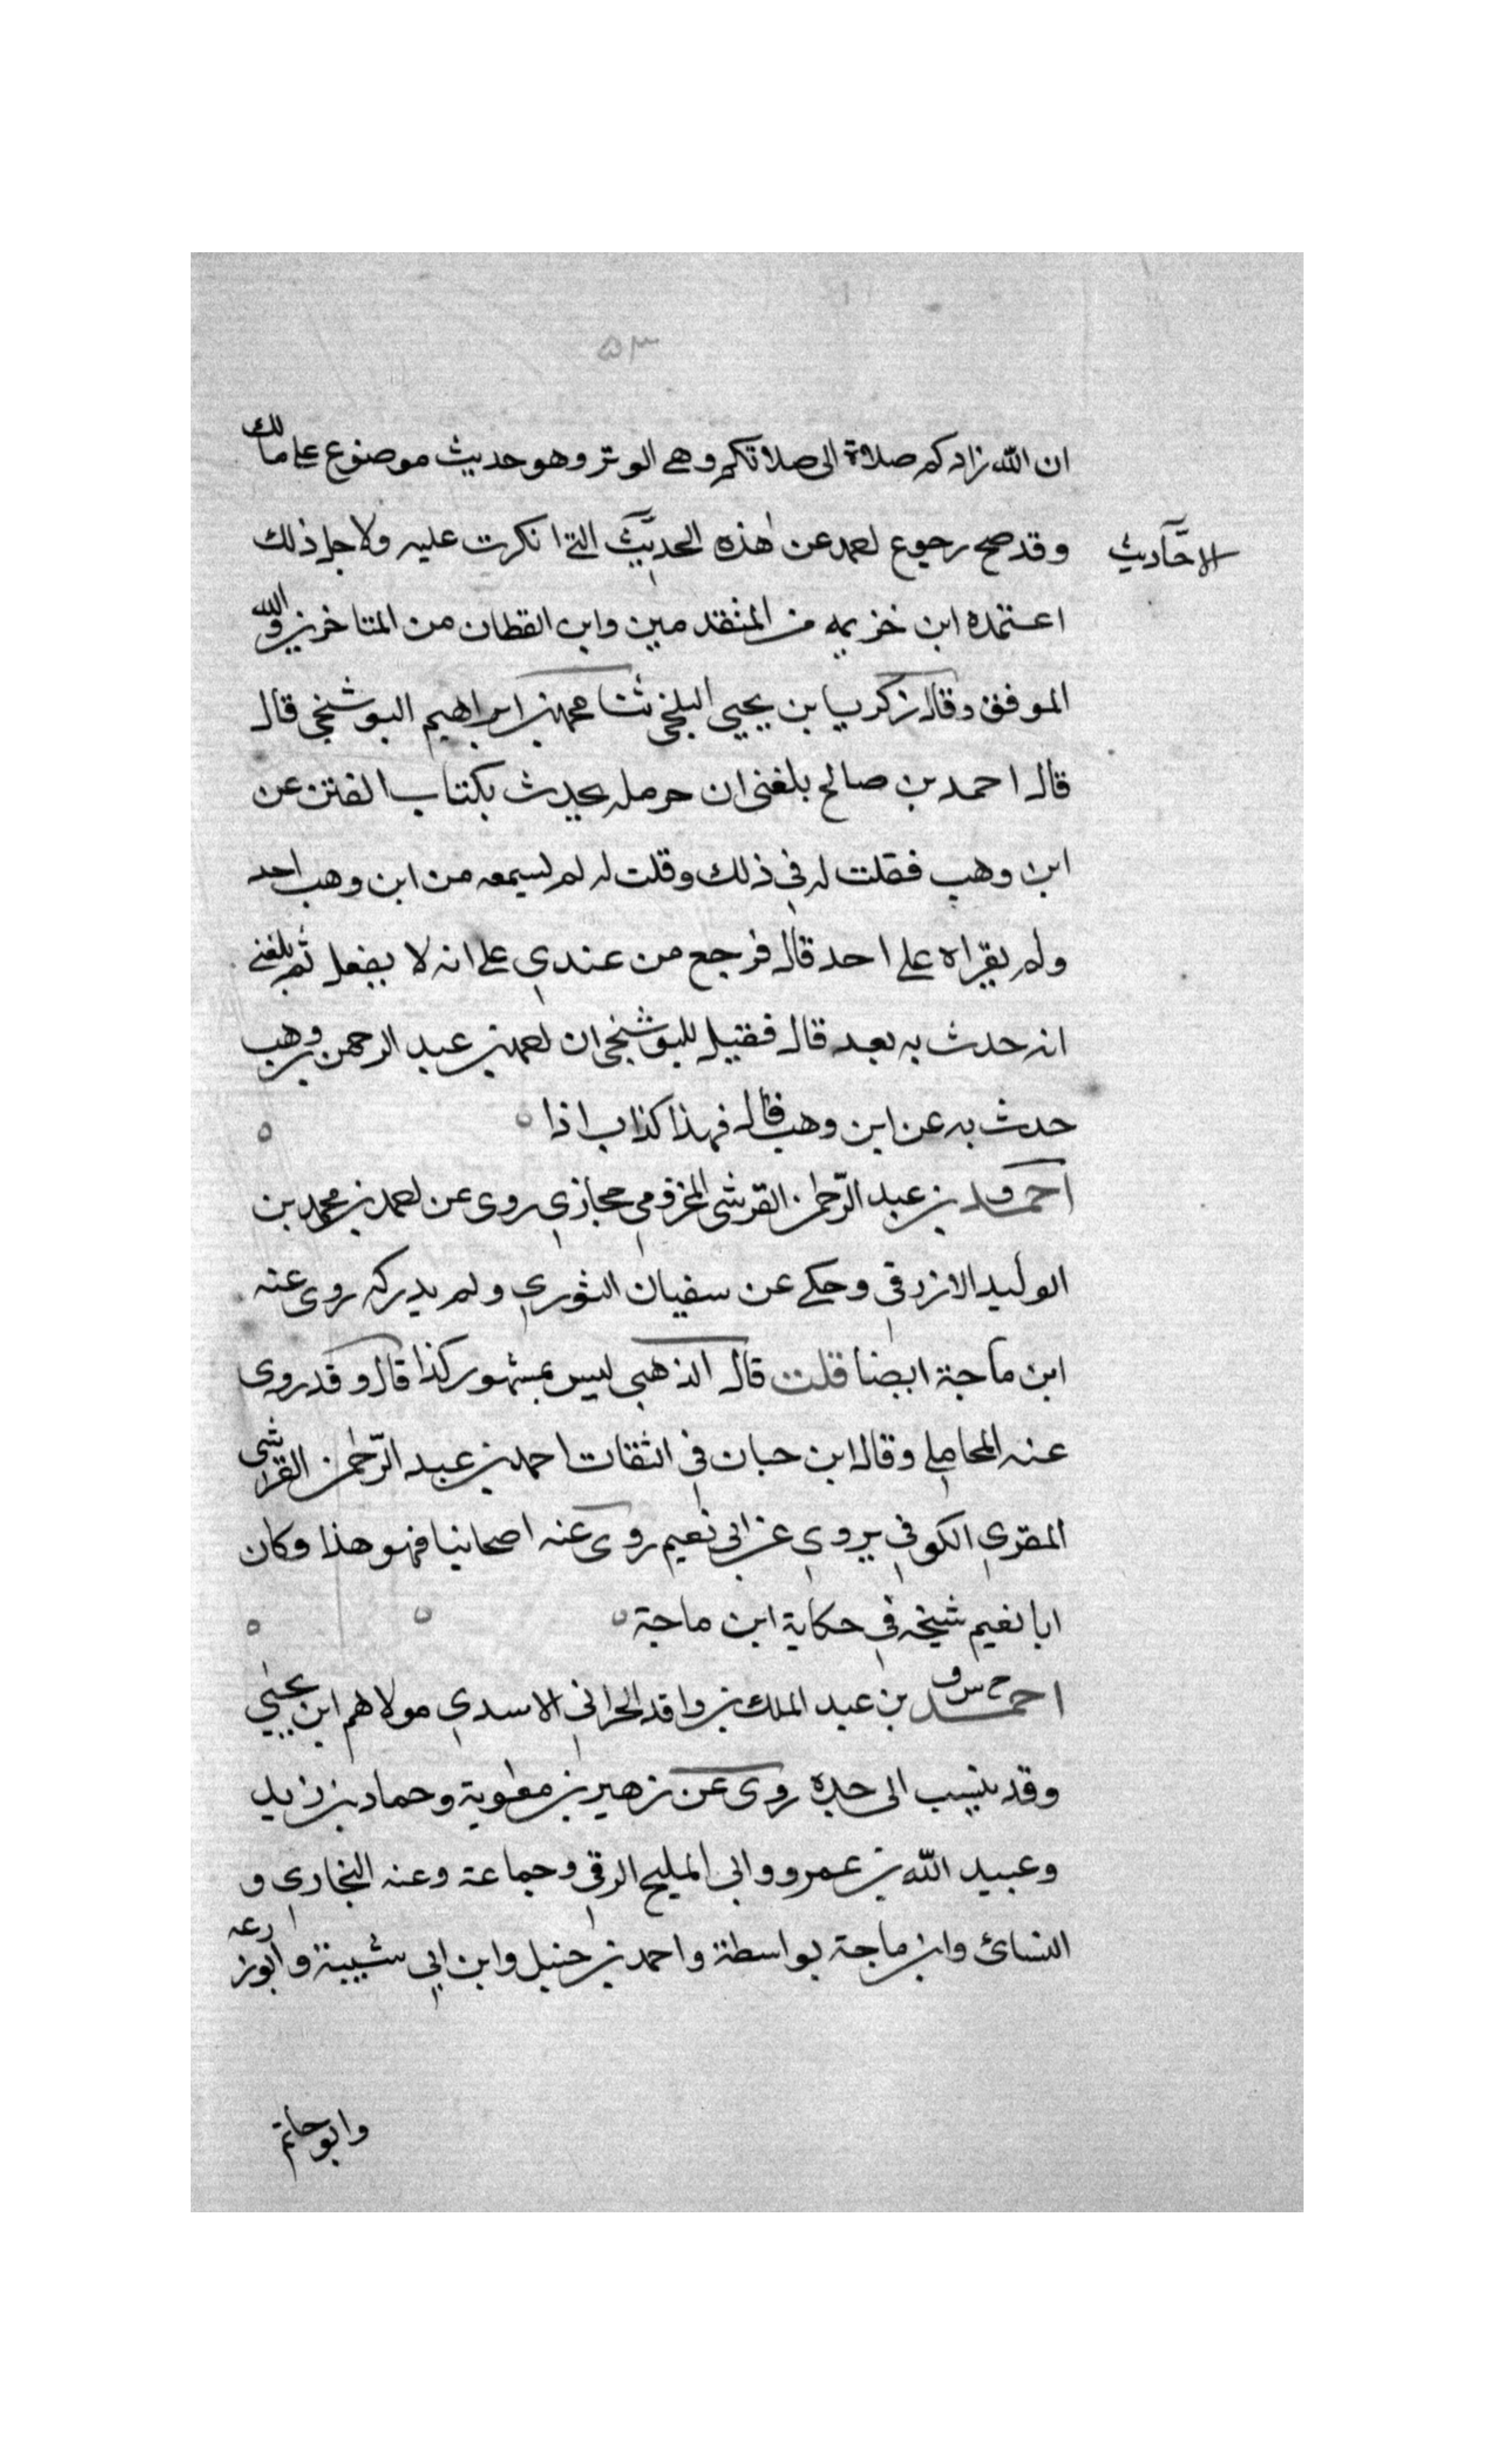 ٥٣
ان الله زادكم صلاة الى صلاتكم وهي الوتر وهو حديث موضوع على مالك
وقد صح رجوع احمد عن هذه الحديث التي انكرت عليه ولاجل ذلك
الاحاديث
اعتمده ابن خزيمه من المتقدمين وابن القطان من المتاخرين والله
الموفق وقال زكريا بن يحيى البلخي ثنا محمد بن ابراهيم البوشنجي قال
قال احمد بن صالح بلغني ان حرمله يحدث بكتاب الفتن عن
ابن وهب فقلت له في ذلك وقلت له لم يسمعه من ابن وهب احد
ولم يقراه على احد قال فرجع من عندي على انه لا يفعل ثم بلغني
انه حدث به بعد قال فقيل للبوشنجي ان احمد بن عبد الرحمن بن وهب
حدث به عن ابن وهب قال فهذا كذاب اذا
احمد بن عبد الرحمن القرشي المخزومي حجازي روى عن احمد بن محمد بن
الوليد الازرقي وحكى عن سفيان الثوري ولم يدركه روى عنه
ابن ماجة ايضا قلت قال الذهبي ليس بمشهور كذا قال وقد روى
عنه المحاملي وقال ابن حبان في الثقات احمد بن عبد الرحمن القرشي
المقري الكوفي يروي عن ابي نعيم روى عنه اصحابنا فهو هذا وكان
ابا نعيم شيخه في حكاية ابن ماجة
احمد بن عبد الملك بن واقد الحراني الاسدي مولاهم ابن يحيى
وقد ينسب الى جده روى عن زهير بن معاوية وحماد بن زيد
وعبيد الله بن عمرو وابي المليح الرقي وجماعة وعنه البخاري و
النسائ وابن ماجة بواسطة واحمد بن حنبل وابن ابي شيبة وابو زرعه
وابو حاتم